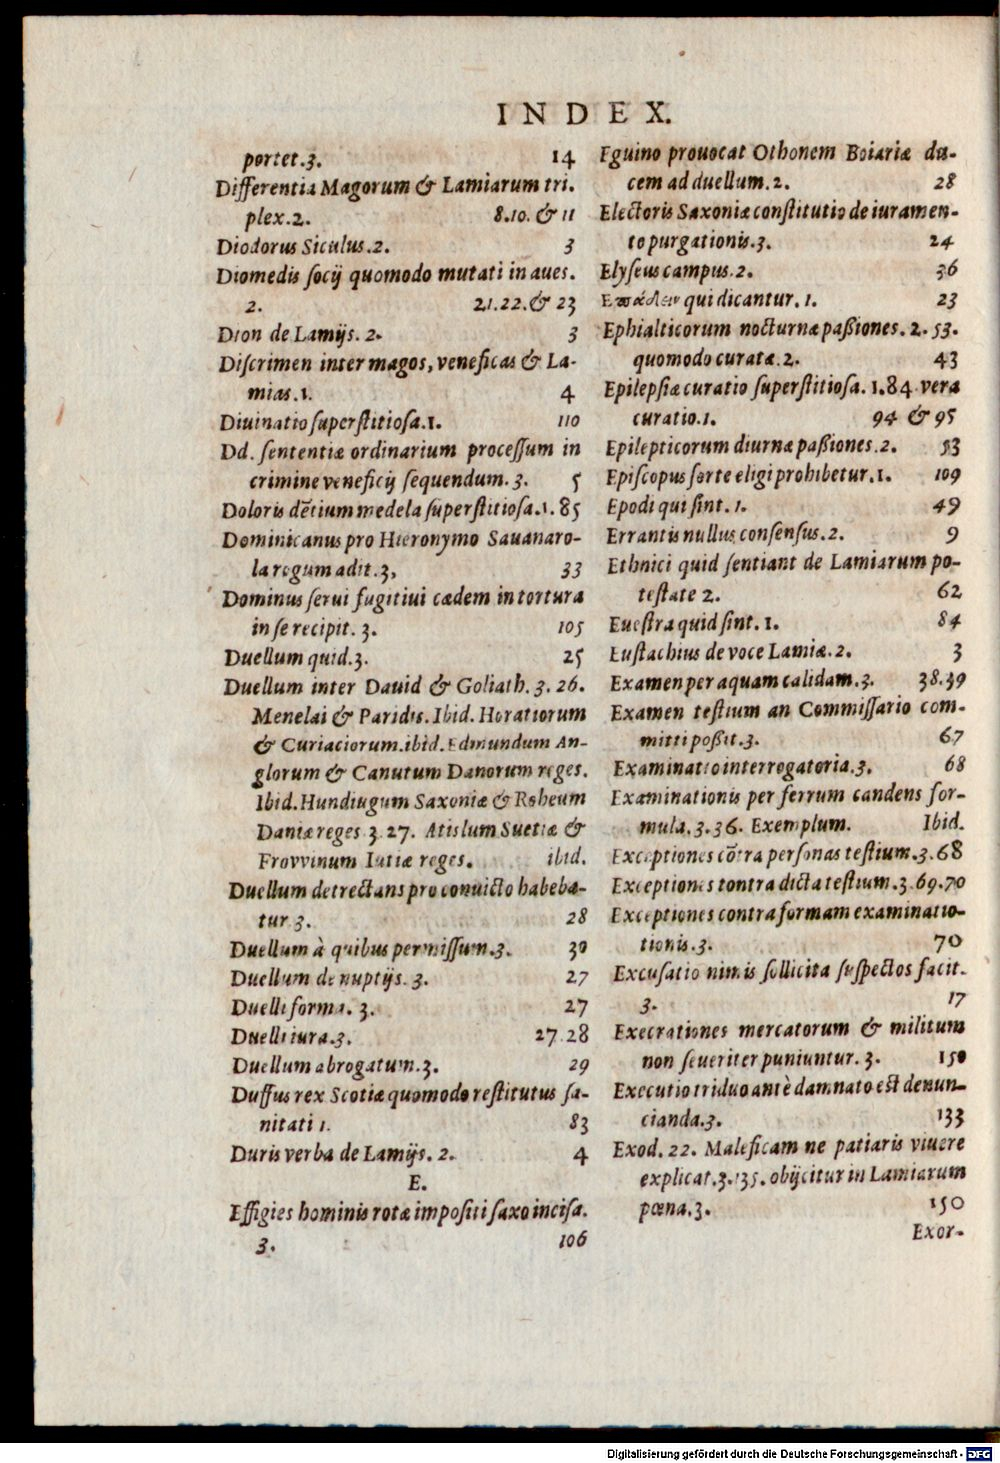 INDEX.
portet.3. 14
Differentia Magorum & Lamiarum tri-
plex.2. 8.10. & 11
Diodorus Siculus.2. 3
Diomedis ſocij quomodo mutati in aues.
2. 21.22.& 23
Dion de Lamijs. 2. 3
Diſcrimen inter magos, veneficas & La-
mias.1. 4
Diuinatio ſuperſtitioſa.1. 110
Dd. ſententiæ ordinarium proceſſum in
crimine veneficij ſequendum. 3. 5
Doloris dētium medela ſuperſtitioſa.1. 85
Dominicanus pro Hieronymo Sauanaro-
la rogum adit.3, 33
Dominus ſerui fugitiui cædem in tortura
in ſe recipit. 3. 105
Duellum quid.3. 25
Duellum inter Dauid & Goliath. 3. 26.
Menelai & Paridis. Ibid. Horatiorum
& Curiaciorum.ibid. Edmundum An-
glorum & Canutum Danorum reges.
Ibid. Hundiugum Saxoniæ & Roheum
Daniæ reges 3. 27. Atislum Suetiæ &
Frovvinum Iutiæ reges. ibid.
Duellum detrectans pro conuicto habeba-
tur 3. 28
Duellum à quibus permiſſum.3. 30
Duellum de nuptijs. 3. 27
Duelli forma. 3. 27
Duelli iura.3. 27.28
Duellum abrogatum.3. 29
Duffus rex Scotiæ quomodo reſtitutus ſa-
nitati 1. 83
Duris verba de Lamijs. 2. 4
E.
Effigies hominis rotæ impoſiti ſaxo inciſa.
3. 106
Eguino prouocat Othonem Boiariæ du-
cem ad duellum.2. 28
Electoris Saxoniæ conſtitutio de iuramen-
to purgationis.3. 24
Elyſeus campus.2. 36
qui dicantur. 1. 23
Ephialticorum nocturnæ paßiones. 2. 53.
quomodo curatæ.2. 43
Epilepſiæ curatio ſuperſtitioſa. 1.84 vera
curatio.1. 94 & 95
Epilepticorum diurnæ paßiones.2. 53
Epiſcopus ſorte eligi prohibetur.1. 109
Epodi qui ſint. 1. 49
Errantis nullus conſenſus.2. 9
Ethnici quid ſentiant de Lamiarum po-
teſtate 2. 62
Eueſtra quid ſint. 1. 84
Euſtachius de voce Lamiæ.2. 3
Examen per aquam calidam.3. 38.39
Examen teſtium an Commiſſario com-
mitti poßit.3. 67
Examinatio interrogatoria.3. 68
Examinationis per ferrum candens for-
mula.3.36. Exemplum. Ibid.
Exceptiones cōtra perſonas teſtium.3.68
Exceptiones tontra dicta teſtium.3.69.70
Exceptiones contra formam examinatio-
tionis.3. 70
Excuſatio nimis ſollicita ſuſpectos facit.
3. 17
Execrationes mercatorum & militum
non ſeueriter puniuntur. 3. 150
Executio triduo antè damnato est denun-
cianda.3. 133
Exod. 22. Maleficam ne patiaris viuere
explicat.3.135. obijcitur in Lamiarum
pœna.3. 150
Exor-
Digitalisierung gefördert durch die Deutsche Forschungsgemeinschaft - DFG